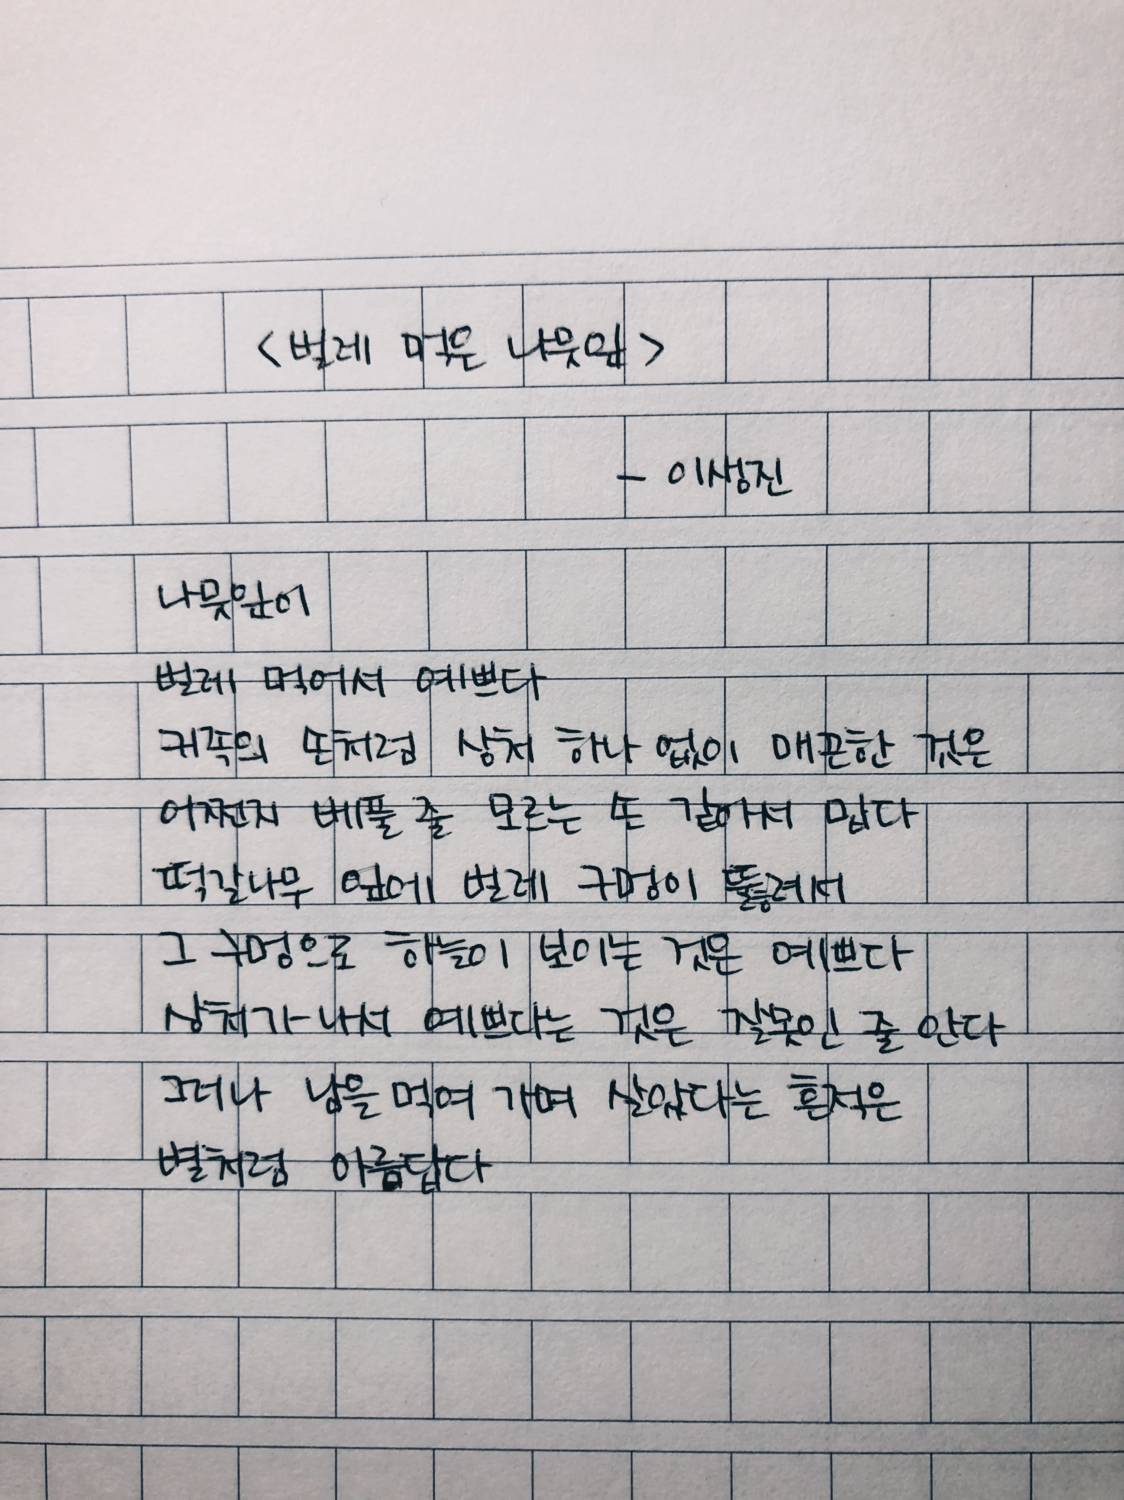 <벌레 먹은 나뭇잎>
- 이생진
나뭇잎이
벌레 먹어서 예쁘다
귀족의 손처럼 상처 하나 없이 매끈한 것은
어쩐지 베풀 줄 모르는 손 같아서 밉다
떡갈나무 잎에 벌레 구멍이 뚫려서
그 구멍으로 하늘이 보이는 것은 예쁘다
상처가 나서 예쁘다는 것은 잘못인 줄 안다
그러나 남을 먹여 가며 살았다는 흔적은
별처럼 아름답다